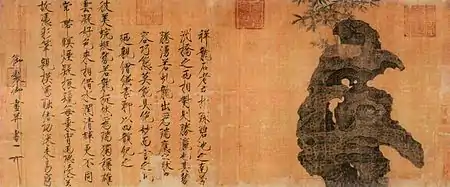 祥龍石者立於環碧池之南芳
洲橋之西相對則勝瀛也其勢
勝湧若虯龍出為瑞應之狀奇
容巧態莫能具絕妙而言之也
廼親繪縑素聊以四韻紀之
彼美蜿蜒勢若龍挺然為瑞獨稱雄
雲凝好色來相借水潤清輝更不同
常帶暝煙疑振鬣每乘宵雨恐凌空
故憑彩筆親模寫融結功深未易窮
御製御畫并書